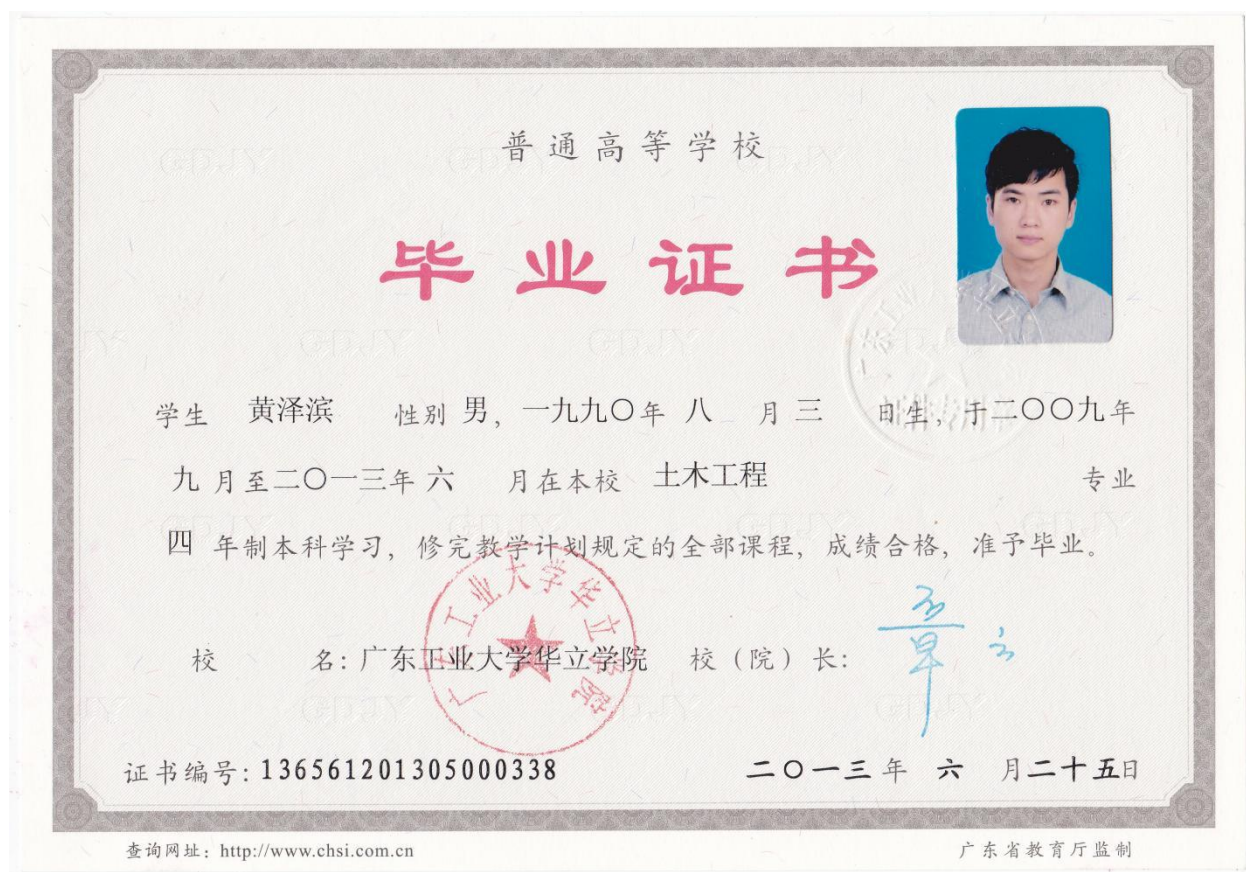 普通高等学校
毕业证书
学生 黄泽滨 性别 男，一九九〇年 八 月 三 日生，于二〇〇九年
九 月至二〇一三年 六 月在本校 土木工程 专业
四 年制本科学习，修完教学计划规定的全部课程，成绩合格，准予毕业。
广东工业大学华立学院
校 名：广东工业大学华立学院 校（院）长：
证书编号：136561201305000338 二〇一三年 六 月二十五日
查询网址：http://www.chsi.com.cn 广东省教育厅监制